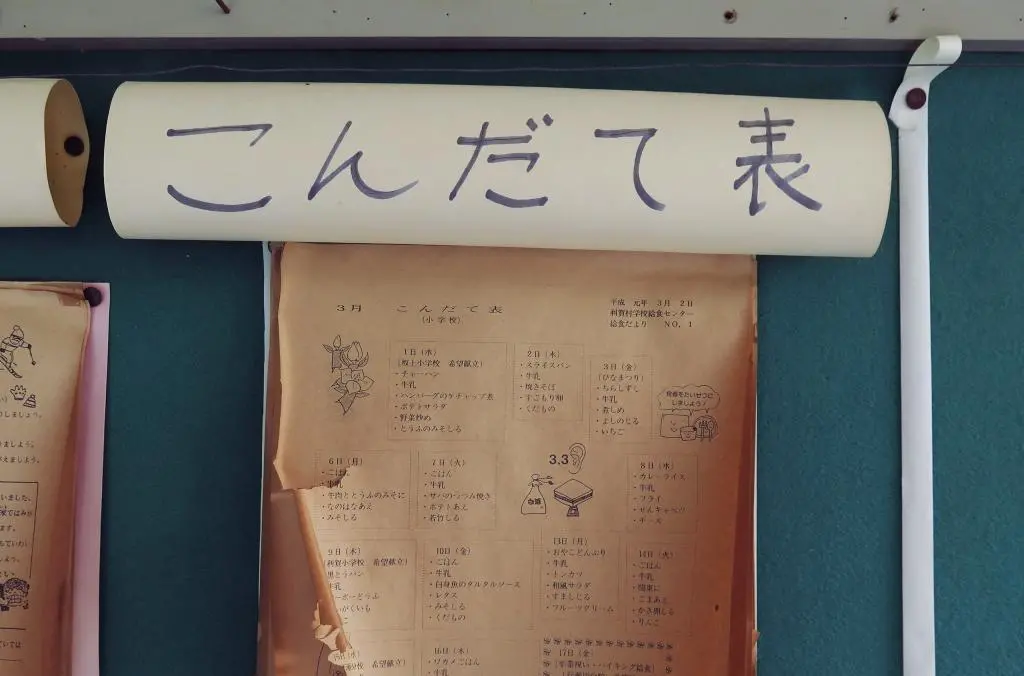 こんだて表
3月 こんだて表
(小学校)
平成 元年 3月 2日
利賀村学校給食センター
給食だより NO. 1
1日(水)
小学校 希望献立)
・チャーハン
・牛乳
・ハンバーグのケチャップ煮
・ポテトサラダ
・野菜炒め
・とうふのみそしる
2日(木)
・スライスパン
・牛乳
・焼きそば
・すごもり卵
・くだもの
3日(金)
(ひなまつり)
・ちらしずし
・牛乳
・煮しめ
・よしのじる
・いちご
食器をたいせつに
しましょう♪
6日(月)
・ごはん
・牛乳
・牛肉ととうふのみそに
・なのはなあえ
・みそしる
7日(火)
・ごはん
・牛乳
・サバのつつみ焼き
・ポテトあえ
・若竹じる
3.3
8日(水)
・カレーライス
・牛乳
・フライ
・せんキャベツ
・チーズ
9日(木)
利賀小学校 希望献立)
黒とうパン
牛乳
ーボーどうふ
10日(金)
・ごはん
・牛乳
・白身魚のタルタルソース
・レタス
・みそしる
・くだもの
13日(月)
・おやこどんぶり
・牛乳
・トンカツ
・和風サラダ
・すましじる
・フルーツクリーム
14日(火)
・ごはん
・牛乳
・関東に
・ごまあえ
・かき卵じる
・りんご
15日(水)
校 希望献立)
16日(木)
・ワカメごはん
・牛乳
17日(金)
(卒業祝い・ハイキング給食)
のしましょう。
ましょう。
えましょう。
いました。
ます。
しょう。